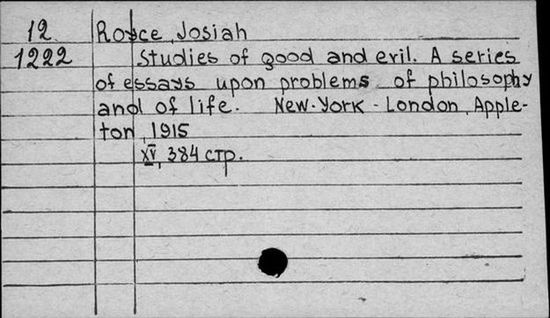 12 Royce, Josiah
1222 Studies of good and evil. A series
of essays upon problems of philosophy
and of life. New-York - London, Apple-
ton, 1915
XV, 384 стр.